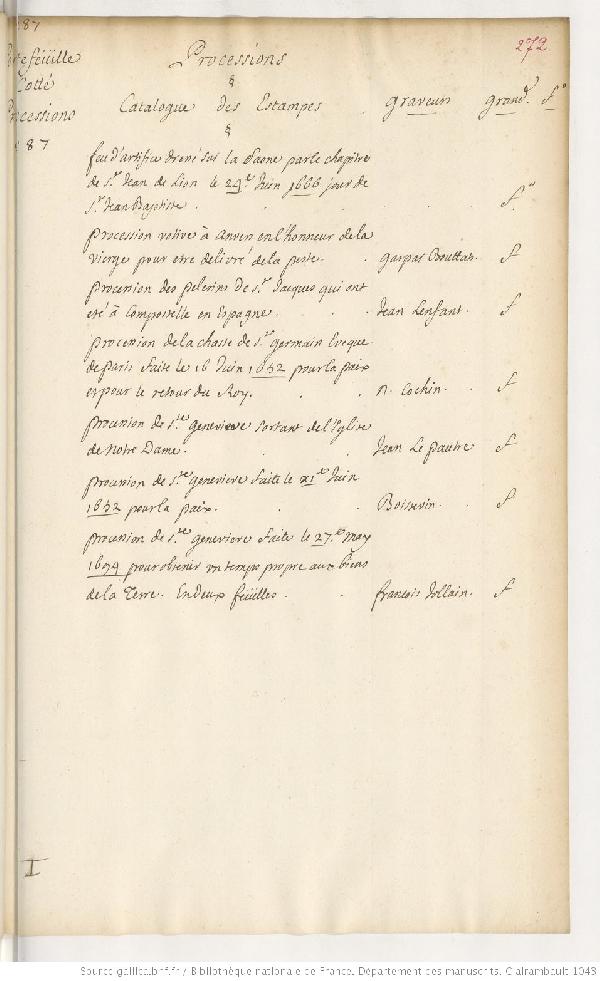 87
272
Portefeüille
Cotté
Processions
87
Processions
§
Catalogue des Estampes graveurs grandr. fo
§
feu d'artifice dressé sur la Saone par le chapitre
de St. Jean de Lion le 24e. Juin 1666 jour de
St. Jean Baptiste. fo
Procession votive à Anvers en l'honneur de la
Vierge pour etre delivré de la peste. gaspar Bouttas. f
Procession des pelerins de St. Jacques qui ont
eté à Compostelle en Espagne. Jean Lenfant. f
Procession de la chasse de St. germain Eveque
de Paris faite le 16 Juin 1652 pour la paix
et pour le retour du Roy. n. Cochin. f
Procession de Ste. genevieve sortant de l'Eglise
de Notre Dame. Jean Le pautre f
Procession de Ste. genevieve faite le XIe. Juin
1652 pour la paix. Boissevin. f
Procession de Ste. genevieve faite le 27.e may
1694 pour obtenir un temps propre aux biens
de la Terre. En deux feüilles. francois Jollain. f
I
Source gallica.bnf.fr / Bibliothèque nationale de France. Département des manuscrits. Clairambault 1043